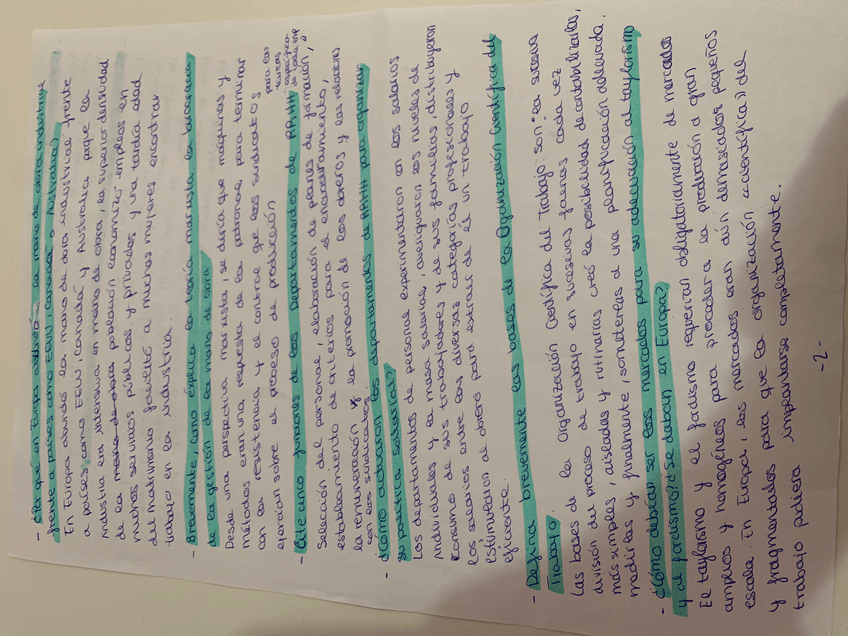 - ¿Por qué en Europa abundó la mano de obra industrial
frente a países como EEUU, Canadá o Australia?
En Europa abundó la mano de obra industrial frente
a países como EEUU, Canadá y Australia porque la
industria era intensiva en mano de obra, la superior densidad
de la mano de obra población economizó empleos en
muchos servicios públicos y privados y una tardía edad
del matrimonio facilitó a muchas mujeres encontrar
trabajo en la industria.
- Brevemente, ¿cómo explica la teoría marxista la burocracia
de la gestión de la mano de obra
Desde una perspectiva marxista, se diría que máquinas y
métodos eran una respuesta de la patronal para terminar
con la resistencia y el control que los sindicatos
ejercían sobre el proceso de producción
- Cite cinco funciones de los Departamentos de RRHH
para las
tareas
específica
de cada emp
Selección del personal, elaboración de planes de formación,
establecimiento de criterios para el encuadramiento,
la remuneración y la promoción de los obreros y las relaciones
con los sindicatos.
- ¿Cómo actuaron los departamentos de RRHH para organizar
su política salarial?
Los departamentos de personal experimentaron con los salarios
individuales y la masa salarial, averiguaron los niveles de
consumo de sus trabajadores y de sus familias, distribuyeron
los salarios entre las diversas categorías profesionales y
estimularon al obrero para extraer de él un trabajo
eficiente.
- Defina brevemente las bases de la Organización Científica del
Trabajo.
Las bases de la Organización Científica del Trabajo: son la
división del proceso de trabajo en sucesivas faenas cada vez
más simples, aisladas y rutinarias creó la posibilidad de contabilizarlas,
medirlas y finalmente, someterlas a una planificación adecuada.
- ¿Cómo debían ser los mercados para su adecuación al taylorismo
y al fordismo? ¿Se daban en Europa?
El taylorismo y el fordismo requerían obligatoriamente de mercados
amplios y homogéneos para proceder a la producción a gran
escala. En Europa, los mercados eran aún demasiado pequeños
y fragmentados para que la organización «científica» del
trabajo pudiera implantarse completamente.
- 2 -